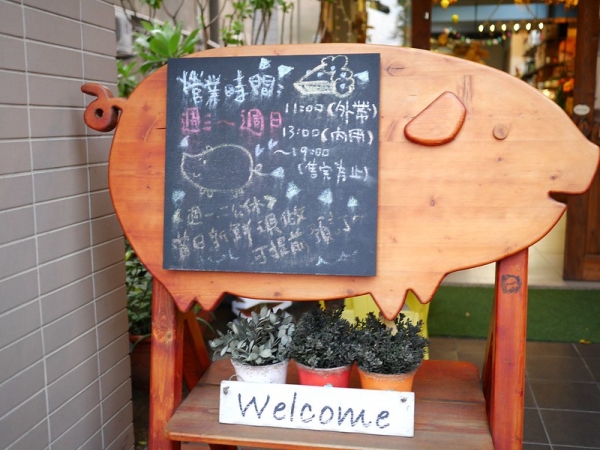 營業時間:
週二～週日
11:00(外帶)
13:00(內用)
～19:00
(售完為止)
(週一公休)
當日新鮮現做
可提前預訂
Welcome